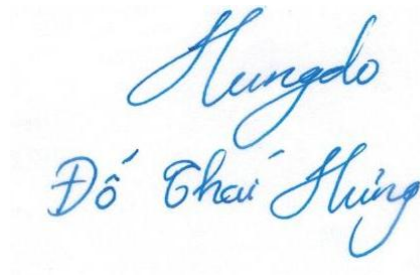 Hungdo
Đố Thái Hưng